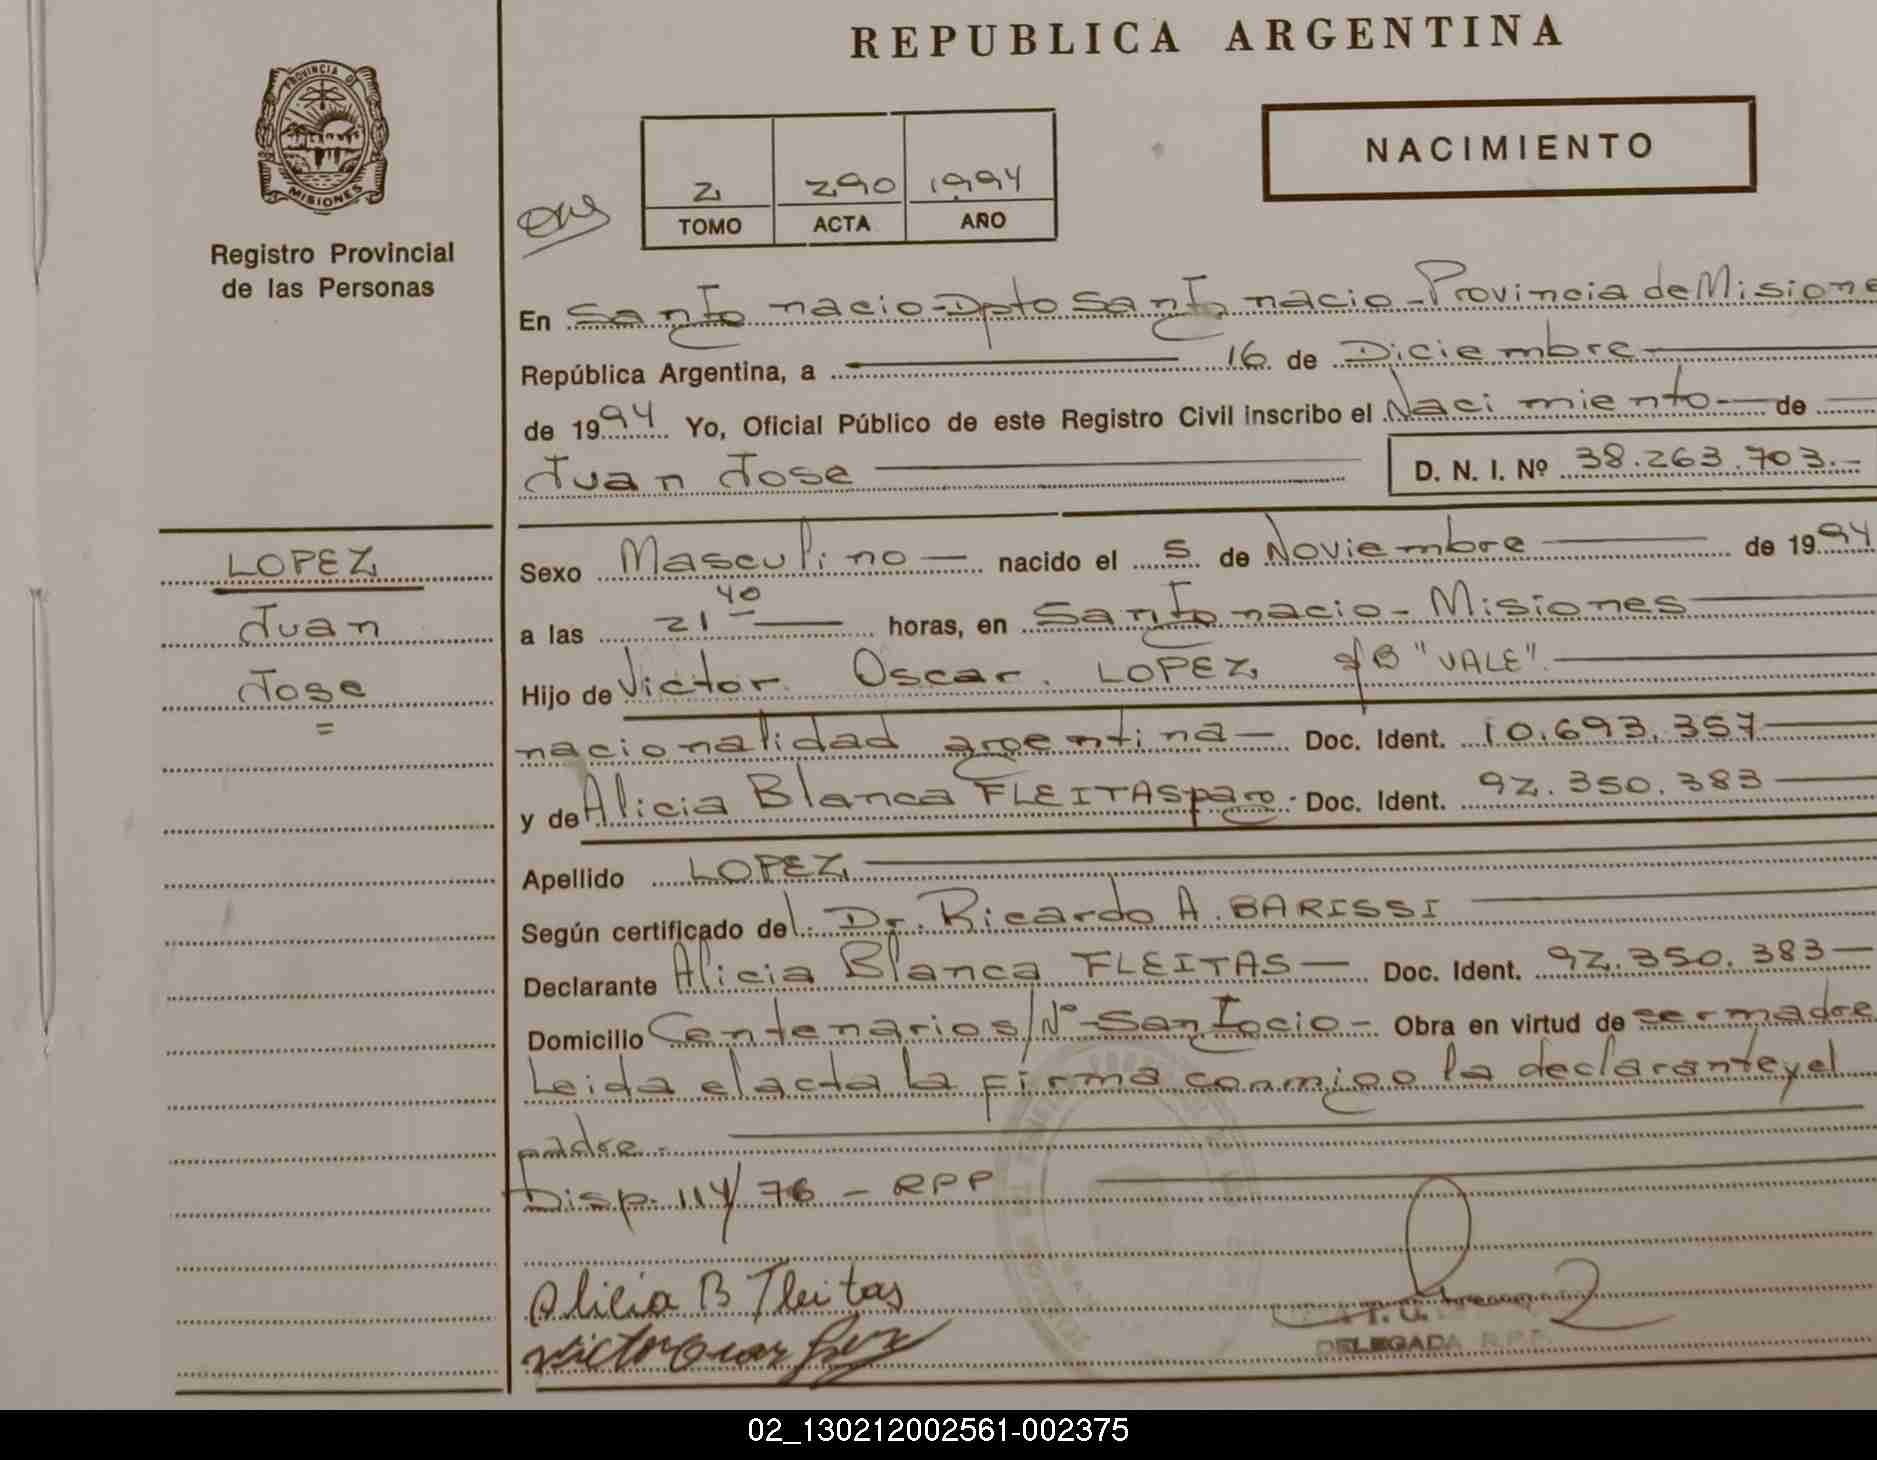 REPUBLICA ARGENTINA
PROVINCIA D
MISIONES
Registro Provincial
de las Personas
2 290 1994
TOMO ACTA AÑO
NACIMIENTO
En San Ignacio-Dpto San Ignacio-Provincia de Misione
República Argentina, a 16 de Diciembre
de 1994 Yo, Oficial Público de este Registro Civil inscribo el Nacimiento de
Juan Jose D. N. I. Nº 38.263.703.-
LOPEZ
Juan
Jose
=
Sexo Masculino nacido el 5 de Noviembre de 1994
a las 21 40 horas, en San Ignacio - Misiones
Hijo de Victor Oscar LOPEZ s/B "VALE".
nacionalidad argentina Doc. Ident. 10.693.357
y de Alicia Blanca FLEITAS parag. Doc. Ident. 92.350.383
Apellido LOPEZ
Según certificado del Dr. Ricardo A. BARISSI
Declarante Alicia Blanca FLEITAS Doc. Ident. 92.350.383
Domicilio Centenario s/Nº - San Igocio - Obra en virtud de ser madre
Leida el acta la firma conmigo la declarante y el
padre.-
Disp. 114/76 - RPP
Alicia B Fleitas
Victor Oscar Lopez
DELEGADA R.P.P.
02_130212002561-002375